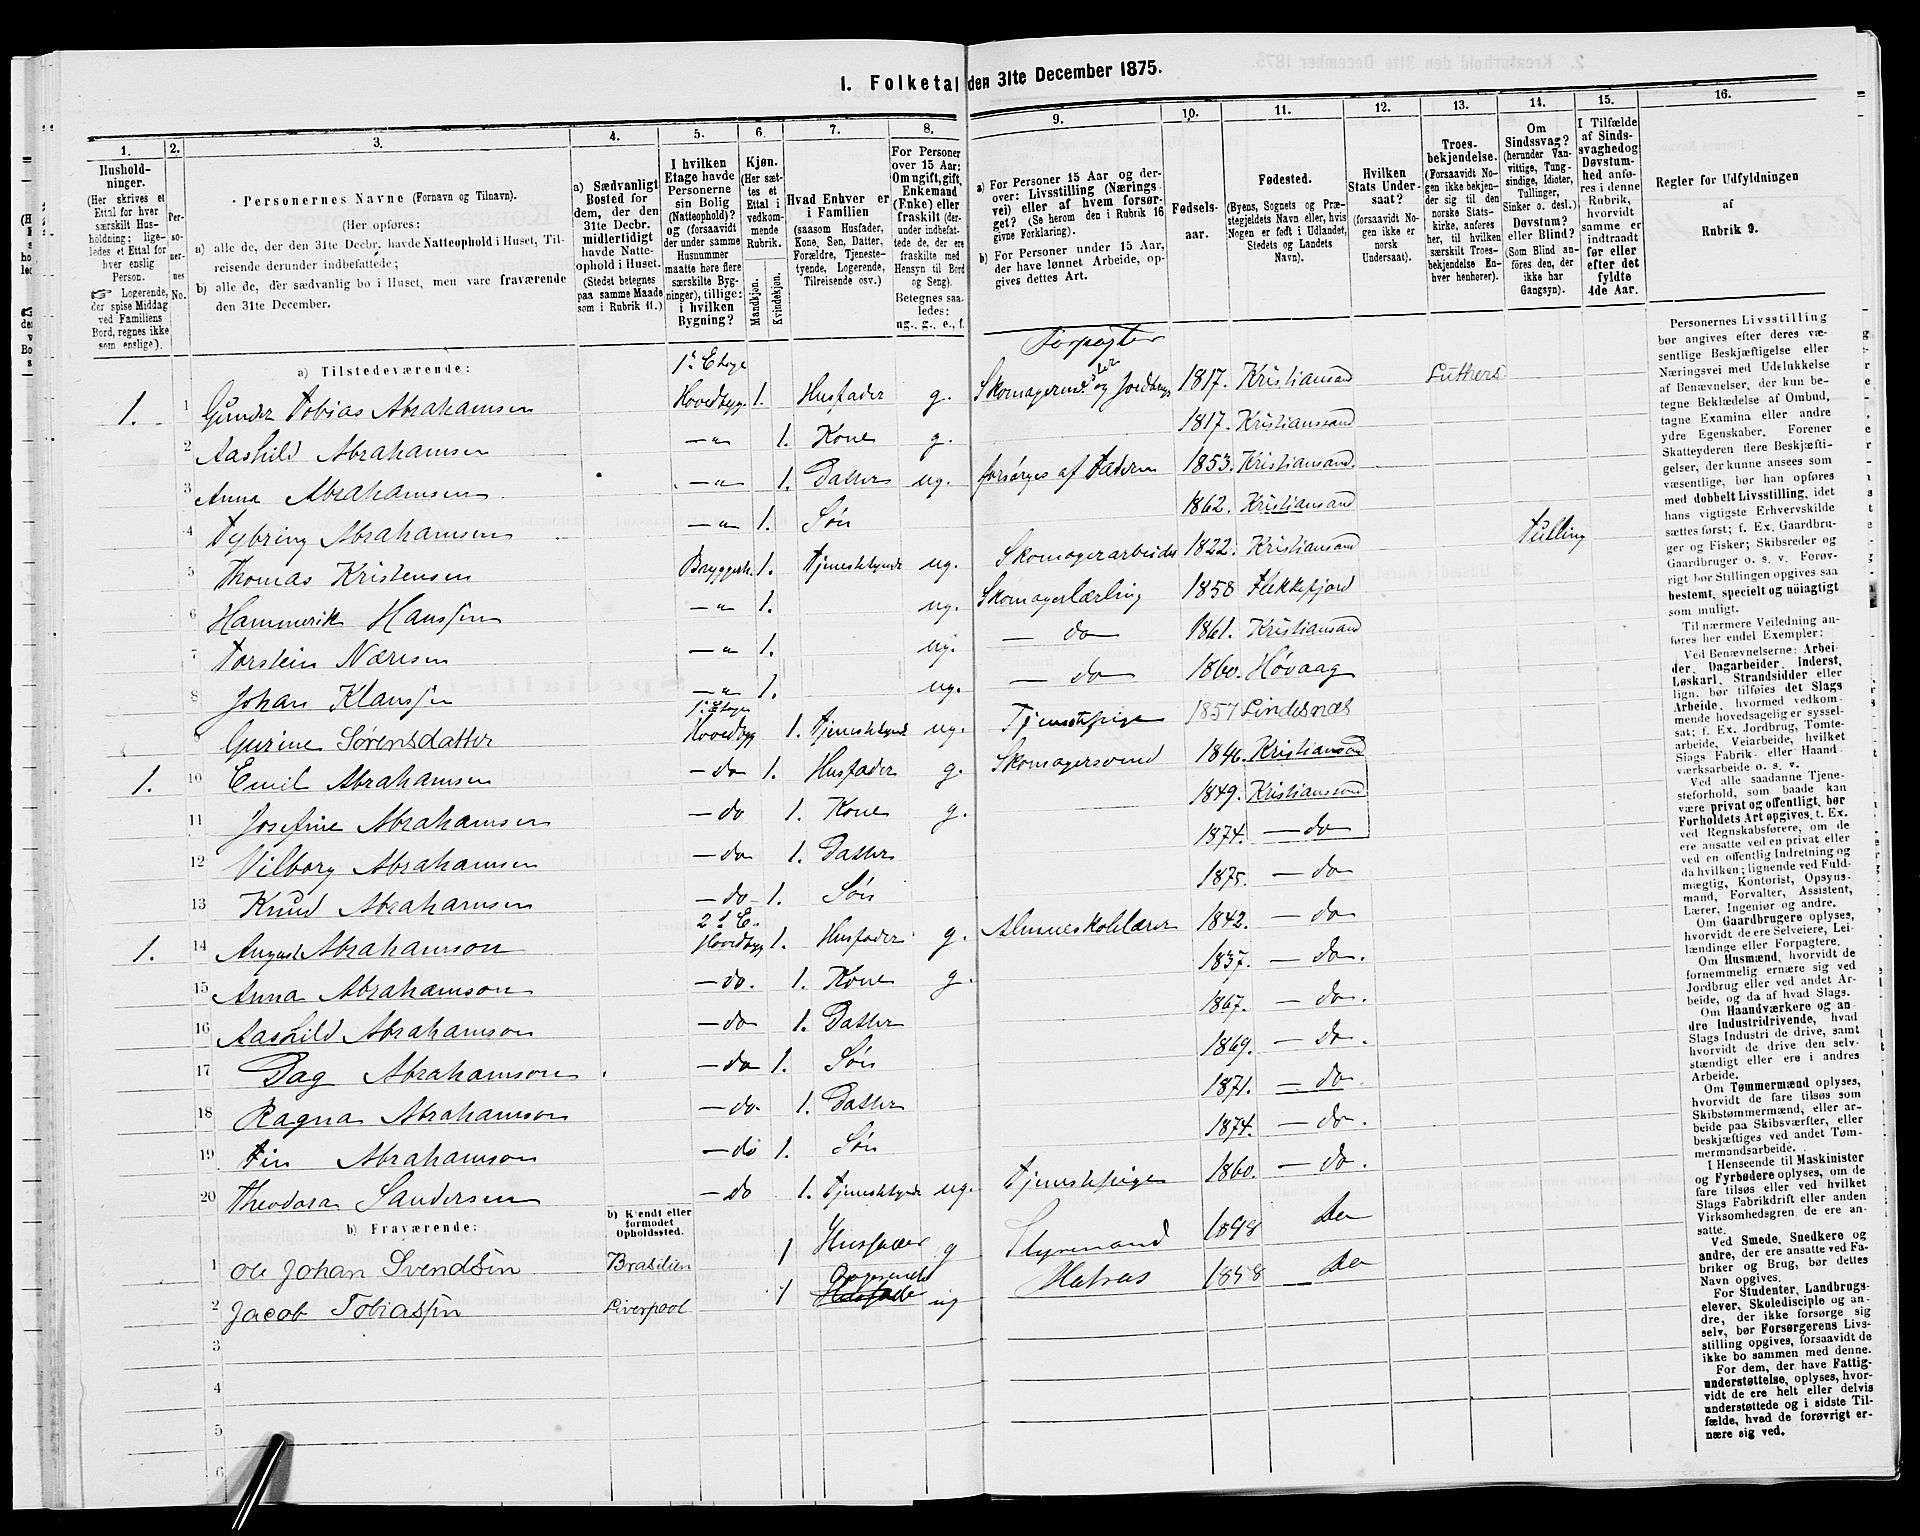 1. Folketal den 31te December 1875.
1. 2. 3. 4. 5. 6. 7. 8. 9. 10. 11. 12. 13. 14. 15. 16.
Hushold-
ninger.
(Her skrives et
Ettal for hver
særskilt Hus-
holdning; lige-
ledes et Ettal
for hver enslig
Person.
☞ Logerende,
der spise Middag
ved Familiens
Bord, regnes ikke
som enslige).
Per-
soner-
nes
No.
Personernes Navne (Fornavn og Tilnavn).
(Her opføres:
a) alle de, der den 31te Decbr. havde Natteophold i Huset, Til-
reisende derunder indbefattede;
b) alle de, der sædvanlig bo i Huset, men vare fraværende
den 31te December.
a) Sædvanligt
Bosted for
dem, der den
31te Decbr.
midlertidigt
havde Natte-
ophold i Huset.
(Stedet betegnes
paa samme Maade
som i Rubrik 11.)
I hvilken
Etage havde
Personerne
sin Bolig
(Natteophold)?
og (forsaavidt
der under samme
Husnummer
maatte høre flere
særskilte Byg-
ninger), tillige:
i hvilken
Bygning?
Kjøn.
(Her sæt-
tes et
Ettal i
vedkom-
mende
Rubrik.
Mandkjøn.
Kvindekjøn.
Hvad Enhver er
i Familien
(saasom Husfader,
Kone, Søn, Datter.
Forældre, Tjeneste-
tyende, Logerende,
Tilreisende osv.)
For Personer
over 15 Aar:
Om ugift, gift,
Enkemand
(Enke) eller
fraskilt (der-
under indbefat-
tede de, der ere
fraskilte med
Hensyn til Bord
og Seng).
Betegnes saa-
ledes:
ug., g., e., f.
a) For Personer 15 Aar og der-
over: Livsstilling (Nærings-
vei) eller af hvem forsør-
get? (Se herom den i Rubrik 16
givne Forklaring).
b) For Personer under 15 Aar,
der have lønnet Arbeide, op-
gives dettes Art.
Fødsels-
aar.
Fødested.
(Byens, Sognets og Præ-
stegjeldets Navn eller, hvis
Nogen er født i Udlandet,
Stedets og Landets
Navn).
Hvilken
Stats Under-
saat?
(forsaavidt No-
gen ikke er
norsk
Undersaat).
Troes-
bekjendelse.
(Forsaavidt No-
gen ikke bekjen-
der sig til den
norske Stats-
kirke, anføres
her, til hvilken
særskilt Troes-
bekjendelse En-
hver henhører).
Om
Sindssvag?
(herunder Van-
vittige, Tung-
sindige, Idioter,
Tullinger,
Sinker o. desl.)
Døvstum?
eller Blind?
(Som Blind an-
føres den, der
ikke har
Gangsyn).
I Tilfælde
af Sinds-
svaghed og
Døvstum-
hed anfø-
res i denne
Rubrik,
hvorvidt
samme er
indtraadt
før eller
efter det
fyldte
4de Aar.
Regler for Udfyldningen
af
Rubrik 9.
a) Tilstedeværende:
1. 1 Gunder Tobias Abrahamsen 1ste Etage Hovedbygg 1. Husfader g. Skomagerm. og Jordbrugs Forpagter 1817. Kristiansand Luthers
2 Aashild Abrahamsen —"— 1. Kone g. 1817. Kristianssand
3 Anna Abrahamsen —"— 1. Datter ug. forsørges af Faderen 1853. Kristiansand.
4 Tybring Abrahamsen —"— 1. Søn 1862. Kristiansand
5 Thomas Kristensen Bryggerh. 1. Tjenestetyende ug. Skomagerarbeider 1822. Kristiansand Tulling
6 Hammerik Hanssen —"— 1. ug. Skomagerlærling 1858 Flekkefjord
7 Torstein Næresen —"— 1. ug. — do 1861. Kristiansand
8 Johan Klaussen —"— 1. ug. — do 1860. Høvaag
9 Gurine Sørensdatter 1ste Etage Hovedbyg 1. Tjenestetyende ug. Tjenestepige 1857 Lindesnæs
1. 10 Emil Abrahamsen — do 1. Husfader g. Skomagersvend 1846. Kristiansand
11 Josefine Abrahamsen — do 1. Kone g. 1849. Kristianssand
12 Vilborg Abrahamsen — do 1. Datter 1874. — do
13 Knud Abrahamsen — do — 1. Søn 1875. — do
1. 14 August Abrahamson 2d E. Hovedbygg 1. Husfader g. Almueskolelærer 1842. — do
15 Anna Abrahamson — do. 1. Kone g. 1837. — do.
16 Aashild Abrahamson — do 1. Datter 1867. — do.
17 Dag Abrahamson — do 1. Søn 1869. — do.
18 Ragna Abrahamson — do 1. Datter 1871. — do.
19 Fin Abrahamson — do 1. Søn 1874. — do.
20 Theodora Sandersen — do 1. Tjenestetyende ug. Tjenestepige 1860. — do.
b) Fraværende:
b) Kjendt eller
formodet
Opholdssted.
1 Ole Johan Svendsen Brasilien 1 Husfader g Styrmand 1848 do
2 Jacob Tobiassen Liverpool 1 Logerende Husfader ug Matros 1858 — do
3
4
5
6
Personernes Livsstilling
bør angives efter deres væ-
sentlige Beskjæftigelse eller
Næringsvei med Udelukkelse
af Benævnelser, der kun be-
tegne Beklædelse af Ombud,
tagne Examina eller andre
ydre Egenskaber. Forener
Skatteyderen flere Beskjæfti-
gelser, der kunne ansees som
væsentlige, bør han opføres
med dobbelt Livsstilling, idet
hans vigtigste Erhvervskilde
sættes først; f. Ex. Gaardbru-
ger og Fisker; Skibsreder og
Gaardbruger o. s. v. Forøv-
rigt bør Stillingen opgives saa
bestemt, specielt og nøiagtigt
som muligt.
Til nærmere Veiledning an-
føres her endel Exempler:
Ved Benævnelserne: Arbei-
der, Dagarbeider, Inderst,
Løskarl, Strandsidder eller
lign. bør tilføies det Slags
Arbeide, hvormed vedkom-
mende hovedsagelig er syssel-
sat; f. Ex. Jordbrug, Tomte-
arbeide, Veiarbeide, hvilket
Slags Fabrik- eller Haand-
værksarbeide o. s. v.
Ved alle saadanne Tjene-
steforhold, som baade kan
være privat og offentligt, bør
Forholdets Art opgives, t. Ex.
ved Regnskabsførere, om de
ere ansatte ved en privat eller
ved en offentlig Indretning og
da hvilken; lignende ved Fuld-
mægtig, Kontorist, Opsyns-
mand, Forvalter, Assistent,
Lærer, Ingeniør og andre.
Om Gaardbrugere oplyses,
hvorvidt de ere Selveiere, Lei-
lændinge eller Forpagtere.
Om Husmænd, hvorvidt de
fornemmelig ernære sig ved
Jordbrug eller ved andet Ar-
beide, og da af hvad Slags.
Om Haandværkere og an-
dre Industridrivende, hvad
Slags Industri de drive, samt
hvorvidt de drive den selv-
stændigt eller ere i andres
Arbeide.
Om Tømmermænd oplyses,
hvorvidt de fare tilsøs som
Skibstømmermænd, eller ar-
beide paa Skibsværfter, eller
beskjæftiges ved andet Tøm-
mermandsarbeide.
I Henseende til Maskinister
og Fyrbødere oplyses, om de
fare tilsøs eller ved hvilket
Slags Fabrikdrift eller anden
Virksomhedsgren de ere an-
satte.
Ved Smede, Snedkere og
andre, der ere ansatte ved Fa-
briker og Brug, bør dettes
Navn opgives.
For Studenter, Landbrugs-
elever, Skoledisciple og an-
dre, der ikke forsørge sig
selv, bør Forsørgerens Livs-
stilling opgives, forsaavidt de
ikke bo sammen med denne.
For dem, der have Fattig-
understøttelse, oplyses, hvor-
vidt de ere helt eller delvis
understøttede og i sidste Til-
fælde, hvad de forøvrigt er-
nære sig ved.